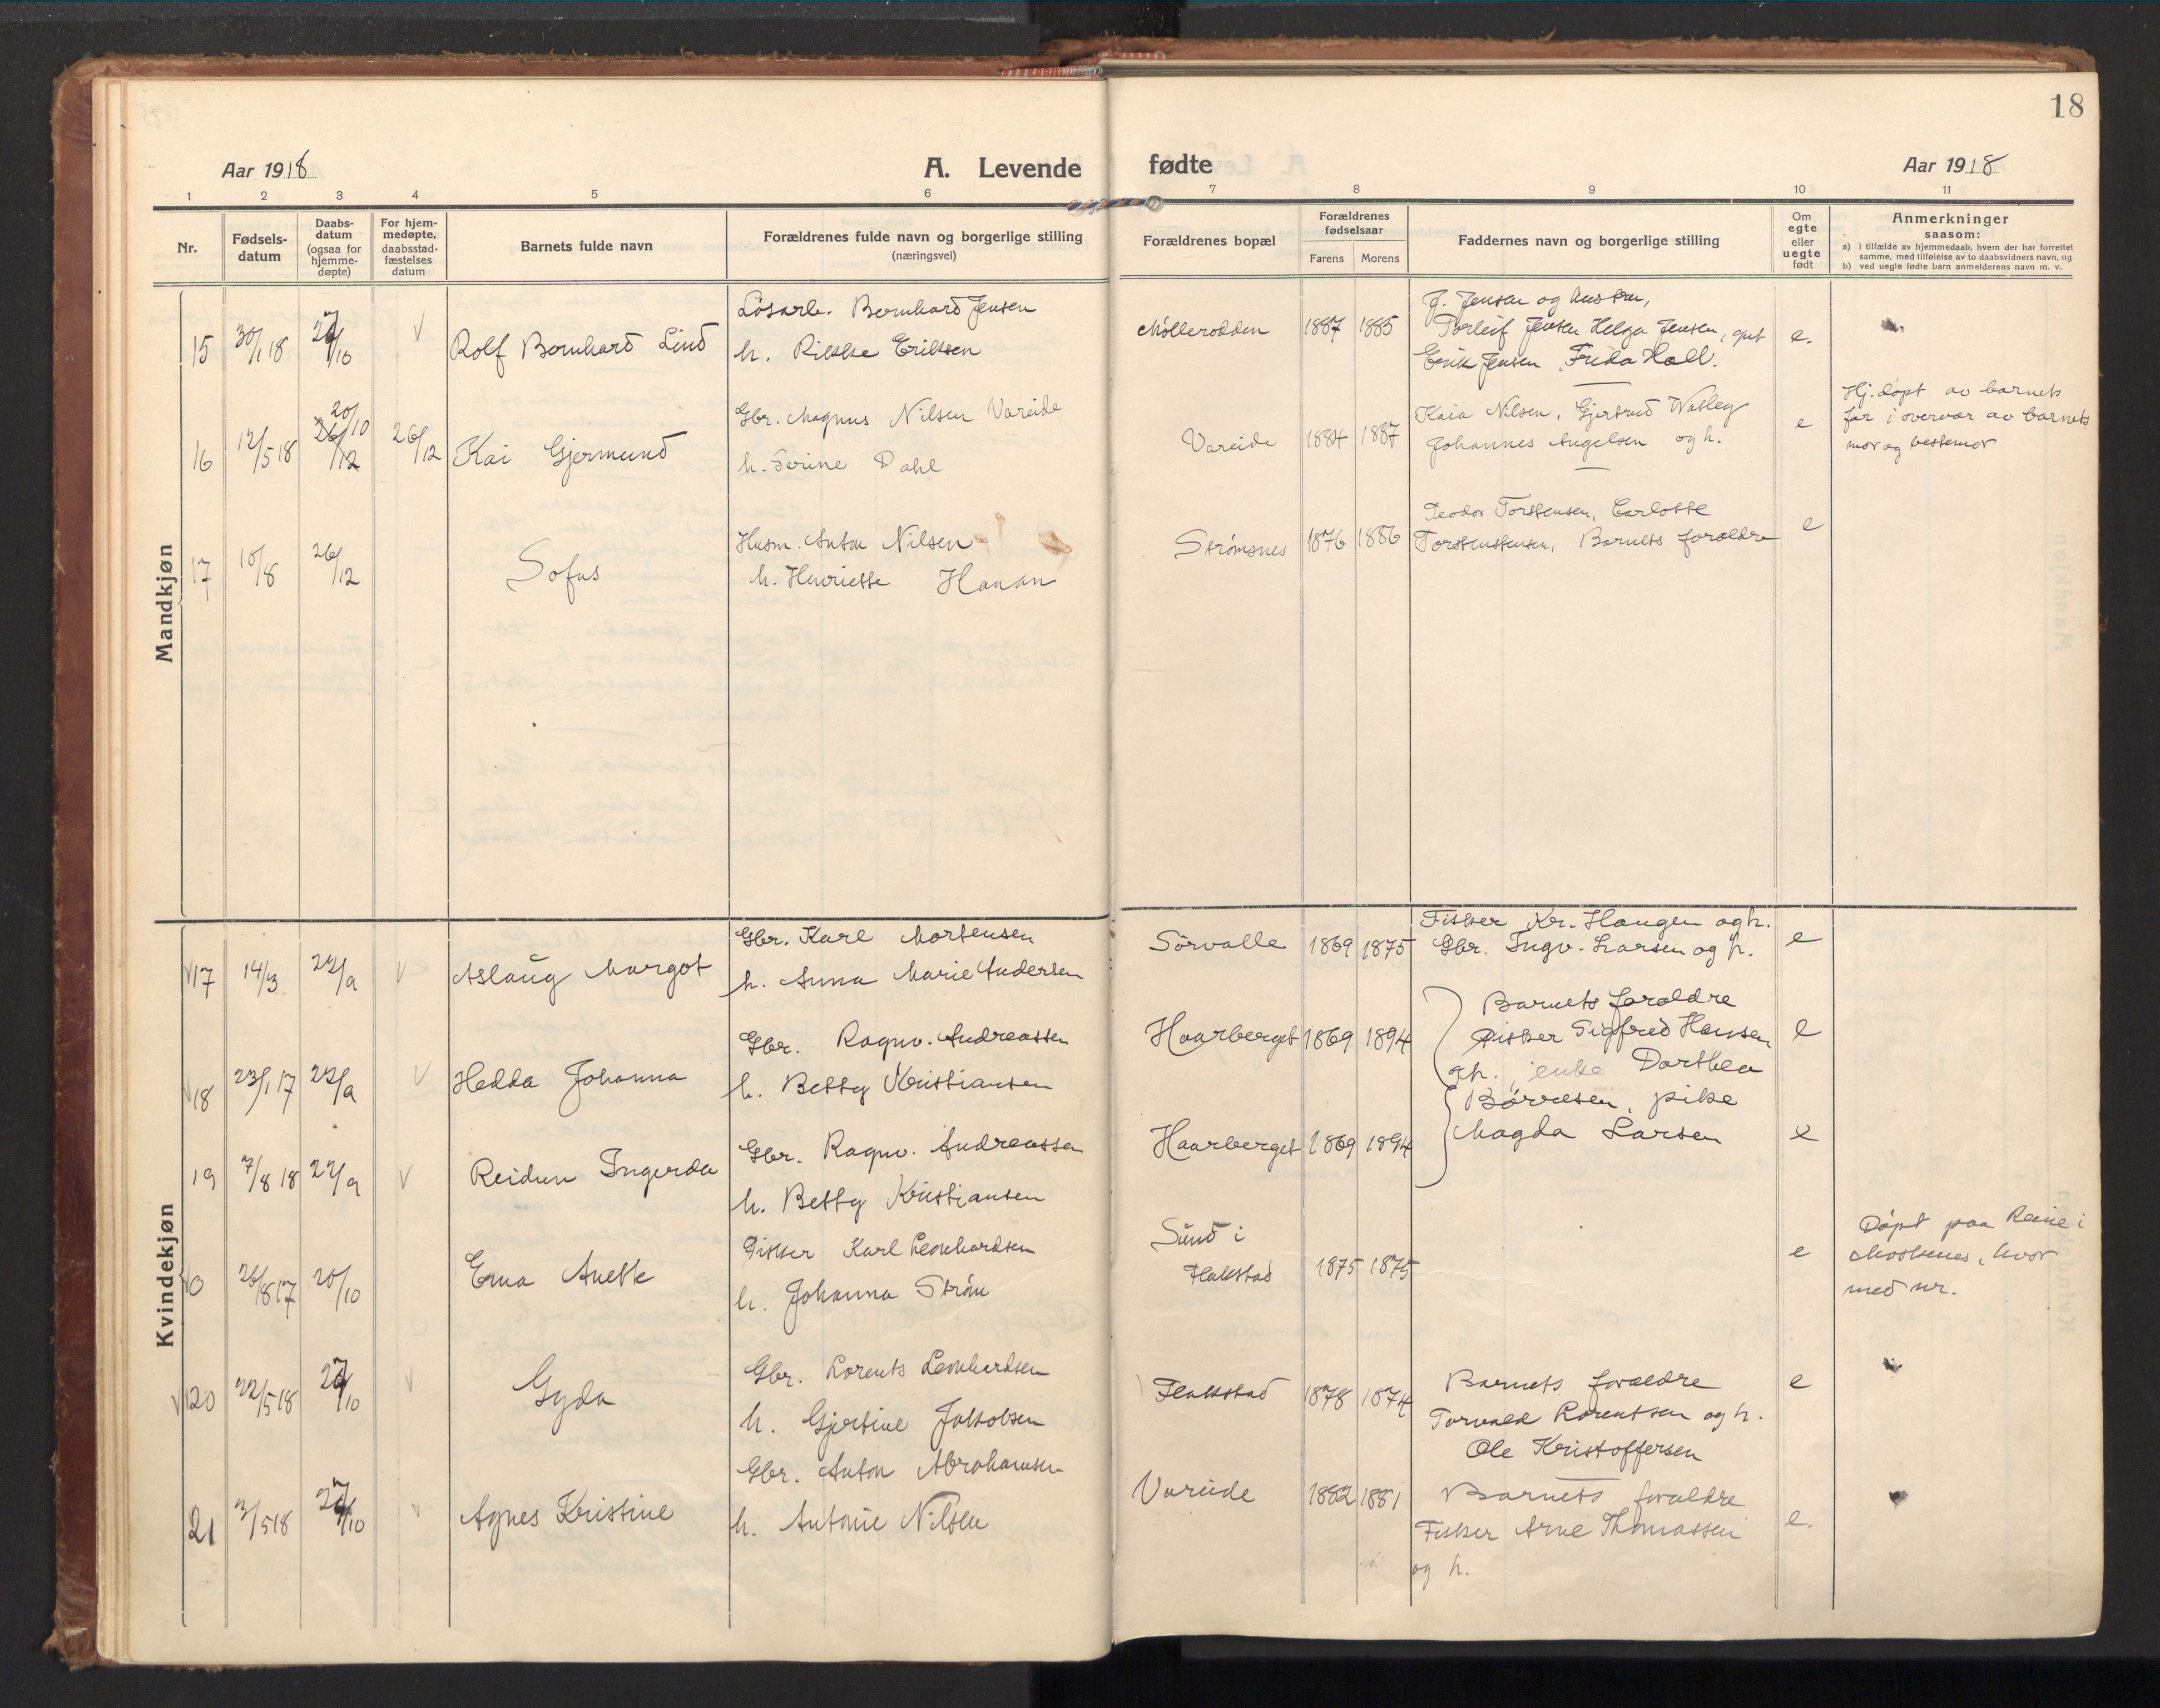 18
Aar 1918
A. Levende fødte
Aar 1918
1 2 3 4 5 6 7 8 9 10 11
Nr.
Fødsels-
datum
Daabs-
datum
(ogsaa for
hjemme-
døpte)
For hjem-
medøpte,
daabsstad-
fæstelses
datum
Barnets fulde navn
Forældrenes fulde navn og borgerlige stilling
(næringsvei)
Forældrenes bopæl
Forældrenes
fødselsaar
Farens Morens
Faddernes navn og borgerlige stilling
Om
egte
eller
uegte
født
Anmerkninger
saasom:
a) i tilfælde av hjemmedaab, hvem der har forrettet
samme, med tilføielse av to daabsvidners navn, og
b) ved uegte fødte barn anmelderens navn m. v.
Mandkjøn
15 30/1 18 27/10 Rolf Bernhard Lind
Løsarb. Bernhard Jensen
h. Rikke Eriksen
Møllerodden 1887 1885
J. Jensen og hustru,
Torleif Jensen Helga Jensen, gut
Erik Jensen, Frida Hall.
e.
16 12/5 18 20/10 26/12 26/12 Kai Gjermund
Gbr. Magnus Nilsen Vareide
h. Serine Dahl
Vareide 1884 1887
Kaia Nilsen, Gjertrud
Johannes Angelsen og h.
e
Hj.døpt av barnets
far i overvær av barnets
mor og bestemor
17 10/8 26/12 Sofus
Husm. Anton Nilsen
h. Henriette
Strømsnes 1876 1886
Teodor Torstensen, Carlotte
Torstenstensen, Barnets forældre
e
Kvindekjøn
17 14/3 22/9 Aslaug Margot
Gbr. Karl Mortensen
h. Anna Marie Andersen
Sörvalle 1869 1875
Fisker Kr. Haugen og h.
Gbr. Ingv. Larsen og h.
e
18 23/1 17 22/9 Hedda Johanna
Gbr. Ragnv. Andreassen
h. Betty Kristiansen
Haarberget 1869 1894
Barnets forældre
Fisker Sigfred Hansen
og h., enke Dorthea
Børresen, pike
Magda Larsen
e
19 7/8 18 22/9 Reidun Ingerda
Gbr. Ragnv. Andreassen
h. Betty Kristiansen
Haarberget 1869 1894
e
0 26/8 17 20/10 Erna Anette
Fisker Karl Leonhardsen
h. Johanna Strøm
Sund i
Flakstad 1875 1875
e
Døpt paa Reine i
Moskenes, hvor
med nr.
20 22/5 18 27/10 Gyda
Gbr. Lorents Leonhardsen
h. Gjertine Jakobsen
Flakstad 1878 1874
Barnets forældre
Torvald Lorentsen og h.
Ole Kristoffersen
e
21 3/5 18 27/10 Agnes Kristine
Gbr. Anton Abrahamsen
h. Antonie Nilsen
Vareide 1882 1881
Barnets forældre
Fisker Arne Thomassen
og h.
e.